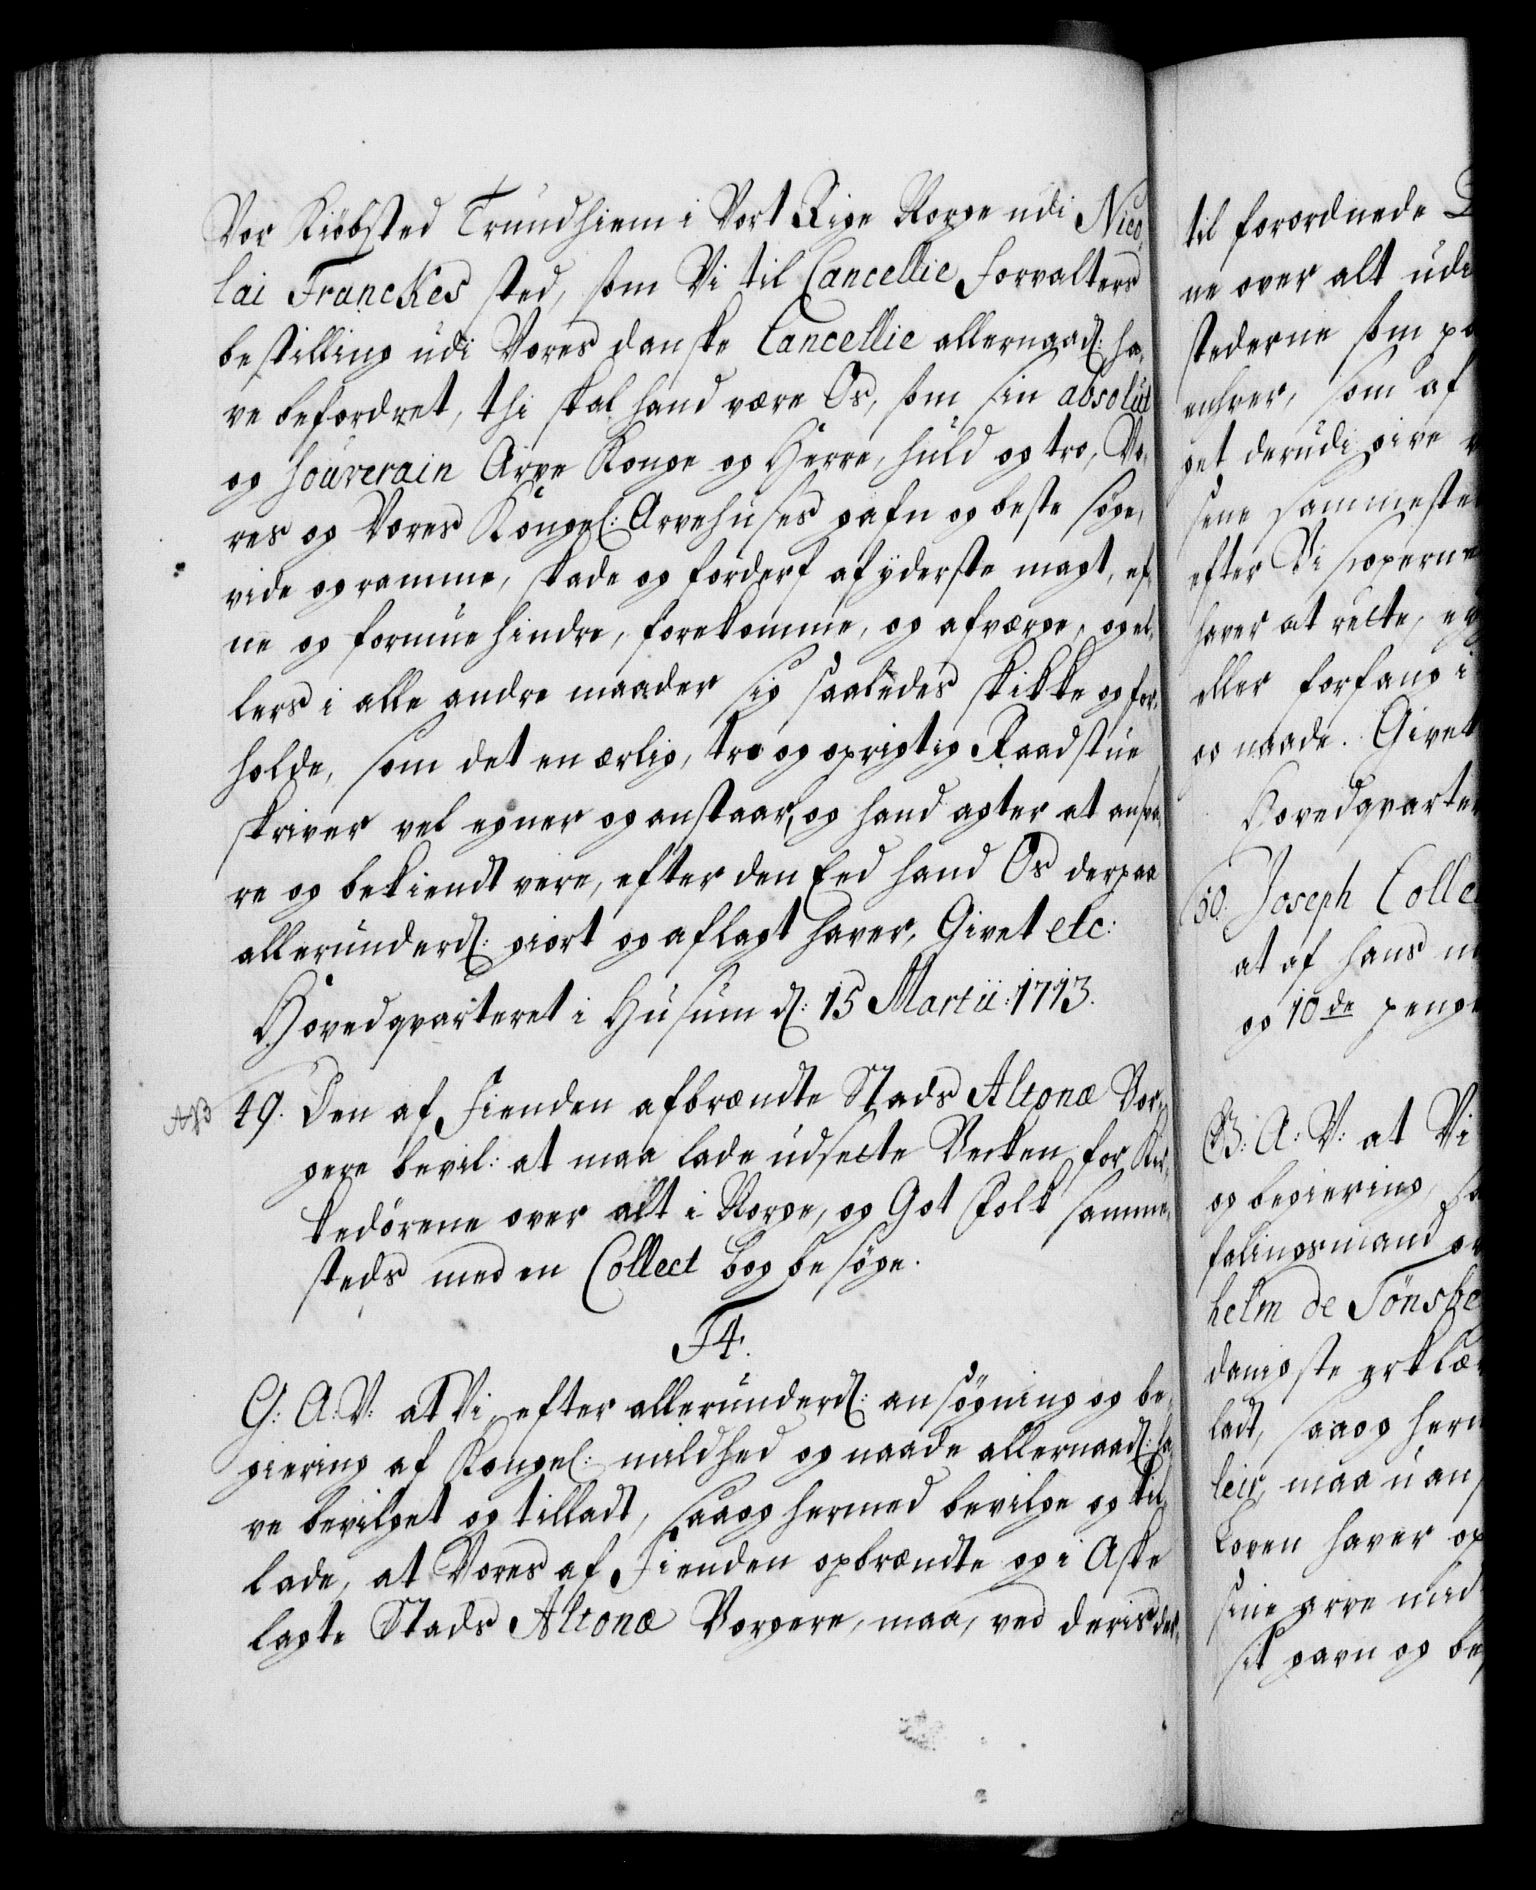 Vor Kiöbsted Trundhiem i Vort Rige Norge udi Nico¬
lai Franckes sted, som Vi til Cancellie forvalters
bestilling udi Vores danske Cancellie allernaadl: ha¬
ve befordret, thi skal hand være Os, som sin absolut
og souverain Arve Konge og Herre, huld og tro, Vo¬
res og Vores Kongel: Arvehuses gafn og beste søge,
vide og ramme, skade og forderf af yderste magt, ef¬
ne og formue hindre, forekomme, og afværge, og el¬
lers i alle andre maader sig saaledes skikke og for¬
holde, som det en ærlig, tro og oprigtig Raadstue
skriver vel egner og anstaar, og hand agter at ansva¬
re og bekiendt vere, efter den Eed hand Os derpaa
allerunderd: giort og aflagt haver, Givet etc:
Hovedqvarteret i Husum d: 15 Martii: 1713.
NB 49. Den af Fienden afbrændte Stads Altonæ Bor¬
gere bevil: at maa lade udsette Becken for Kir¬
kedörene over alt i Norge, og Got Folk samme¬
steds med en Collect bog besöge.
F4.
G: A: V: at Vi, efter allerunderd: ansögning og be¬
giering af Kongel: mildhed og naade allernaadl: ha¬
ve bevilget og tilladt, saa og hermed bevilge og til¬
lade, at Vores af Fienden opbrændte og i Aske
lagte Stads Altonæ Borgere, maa, ved deris der¬
til forordnede
ne over alt udi
stederne som
enhver, som af
get derudi give
sene sammeste
efter Vi
haver at rette,
eller forfang i
og naade. Givet
Hovedqvarter
50. Joseph Colle
at af hans
og 10de penge
G: A: V: at Vi
og begiering,
falingsmand
helm de Tönsbe
danigste erklæ
ladt, saa og her
leir, maa uan
Loven haver op
sine arve med
sit gavn og be